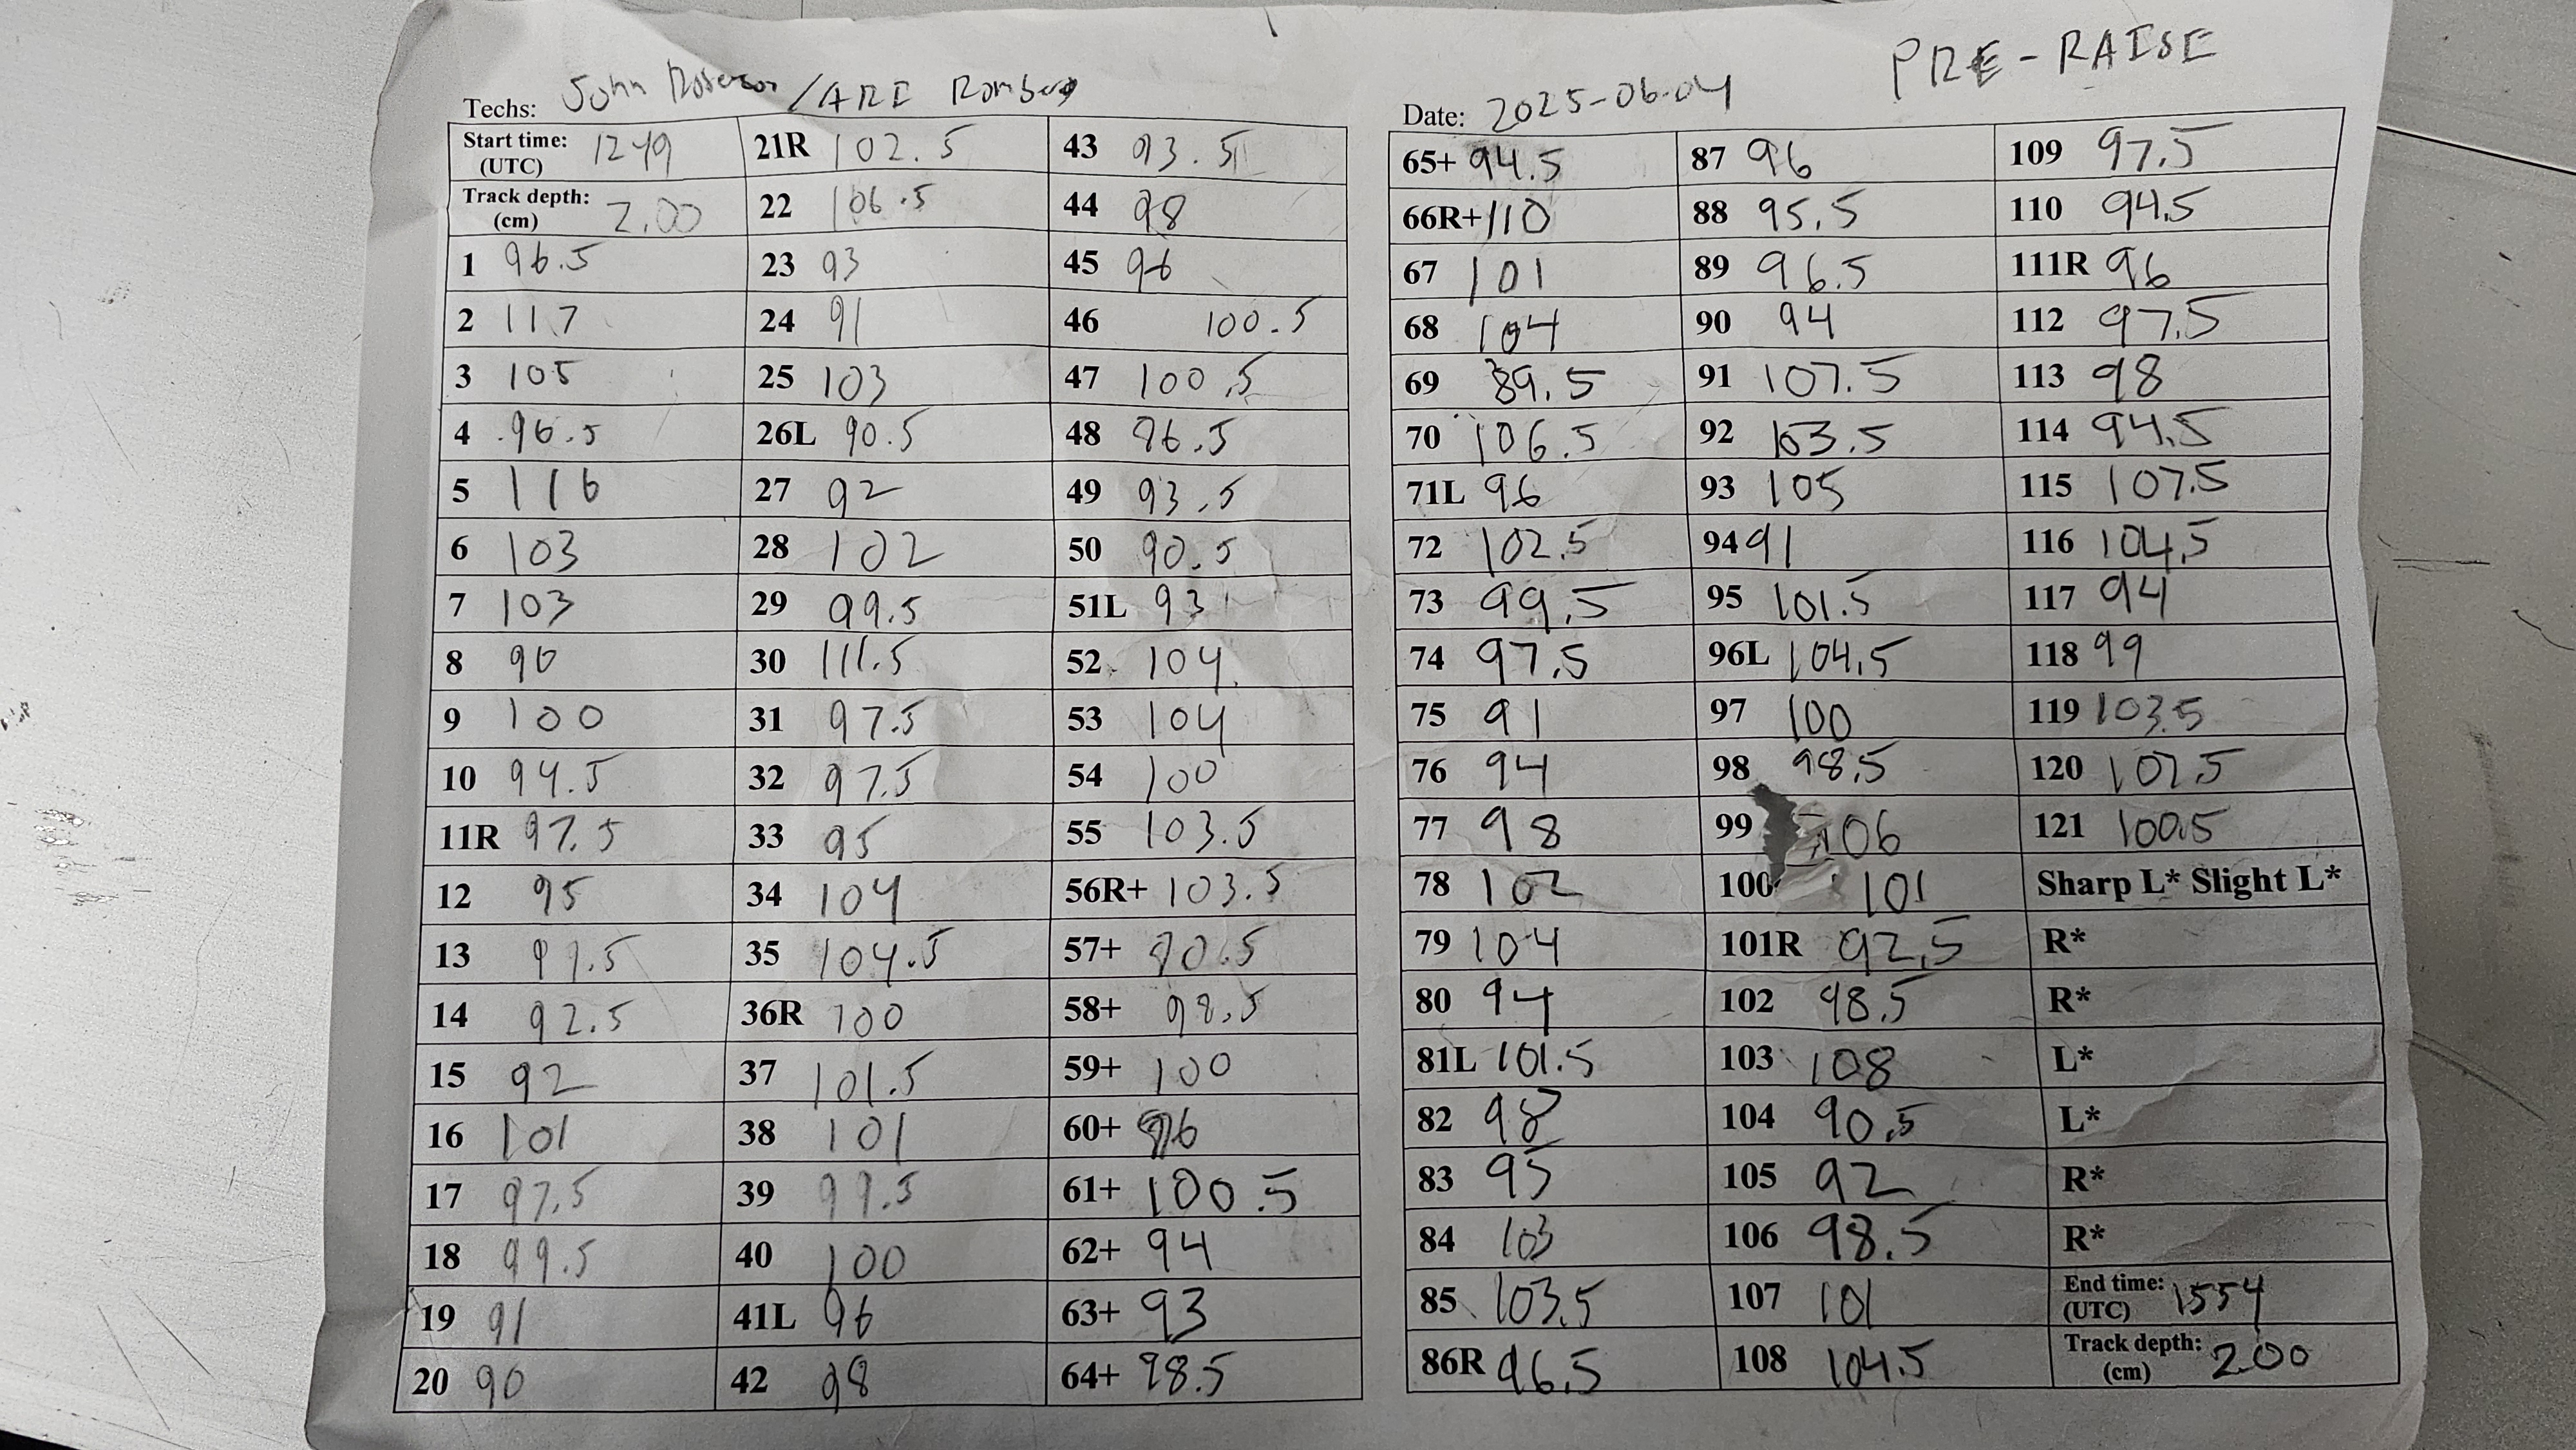 PRE-RAISE
Techs: John /ARI Romberg
Date: 2025-06-04
Start time: (UTC) 1249
Track depth: (cm) 2.00
1 96.5
2 117
3 105
4 96.5
5 116
6 103
7 103
8 90
9 100
10 94.5
11R 97.5
12 95
13 99.5
14 92.5
15 92
16 101
17 97.5
18 99.5
19 91
20 90
21R 102.5
22 106.5
23 93
24 91
25 103
26L 90.5
27 92
28 102
29 99.5
30 111.5
31 97.5
32 97.5
33 95
34 104
35 104.5
36R 100
37 101.5
38 101
39 99.5
40 100
41L 96
42 98
43 93.5
44 98
45 96
46 100.5
47 100.5
48 96.5
49 93.5
50 90.5
51L 93
52 104
53 104
54 100
55 103.5
56R+ 103.5
57+ 90.5
58+ 98.5
59+ 100
60+ 96
61+ 100.5
62+ 94
63+ 93
64+ 98.5
65+ 94.5
66R+ 110
67 101
68 104
69 89.5
70 106.5
71L 96
72 102.5
73 99.5
74 97.5
75 91
76 94
77 98
78 102
79 104
80 94
81L 101.5
82 98
83 95
84 103
85 103.5
86R 96.5
87 96
88 95.5
89 96.5
90 94
91 107.5
92 103.5
93 105
94 91
95 101.5
96L 104.5
97 100
98 98.5
99 106
100 101
101R 92.5
102 98.5
103 108
104 90.5
105 92
106 98.5
107 101
108 104.5
109 97.5
110 94.5
111R 96
112 97.5
113 98
114 94.5
115 107.5
116 104.5
117 94
118 99
119 103.5
120
121 100.5
Sharp L* Slight L*
R*
R*
L*
L*
R*
R*
End time: (UTC) 1554
Track depth: (cm) 2.00